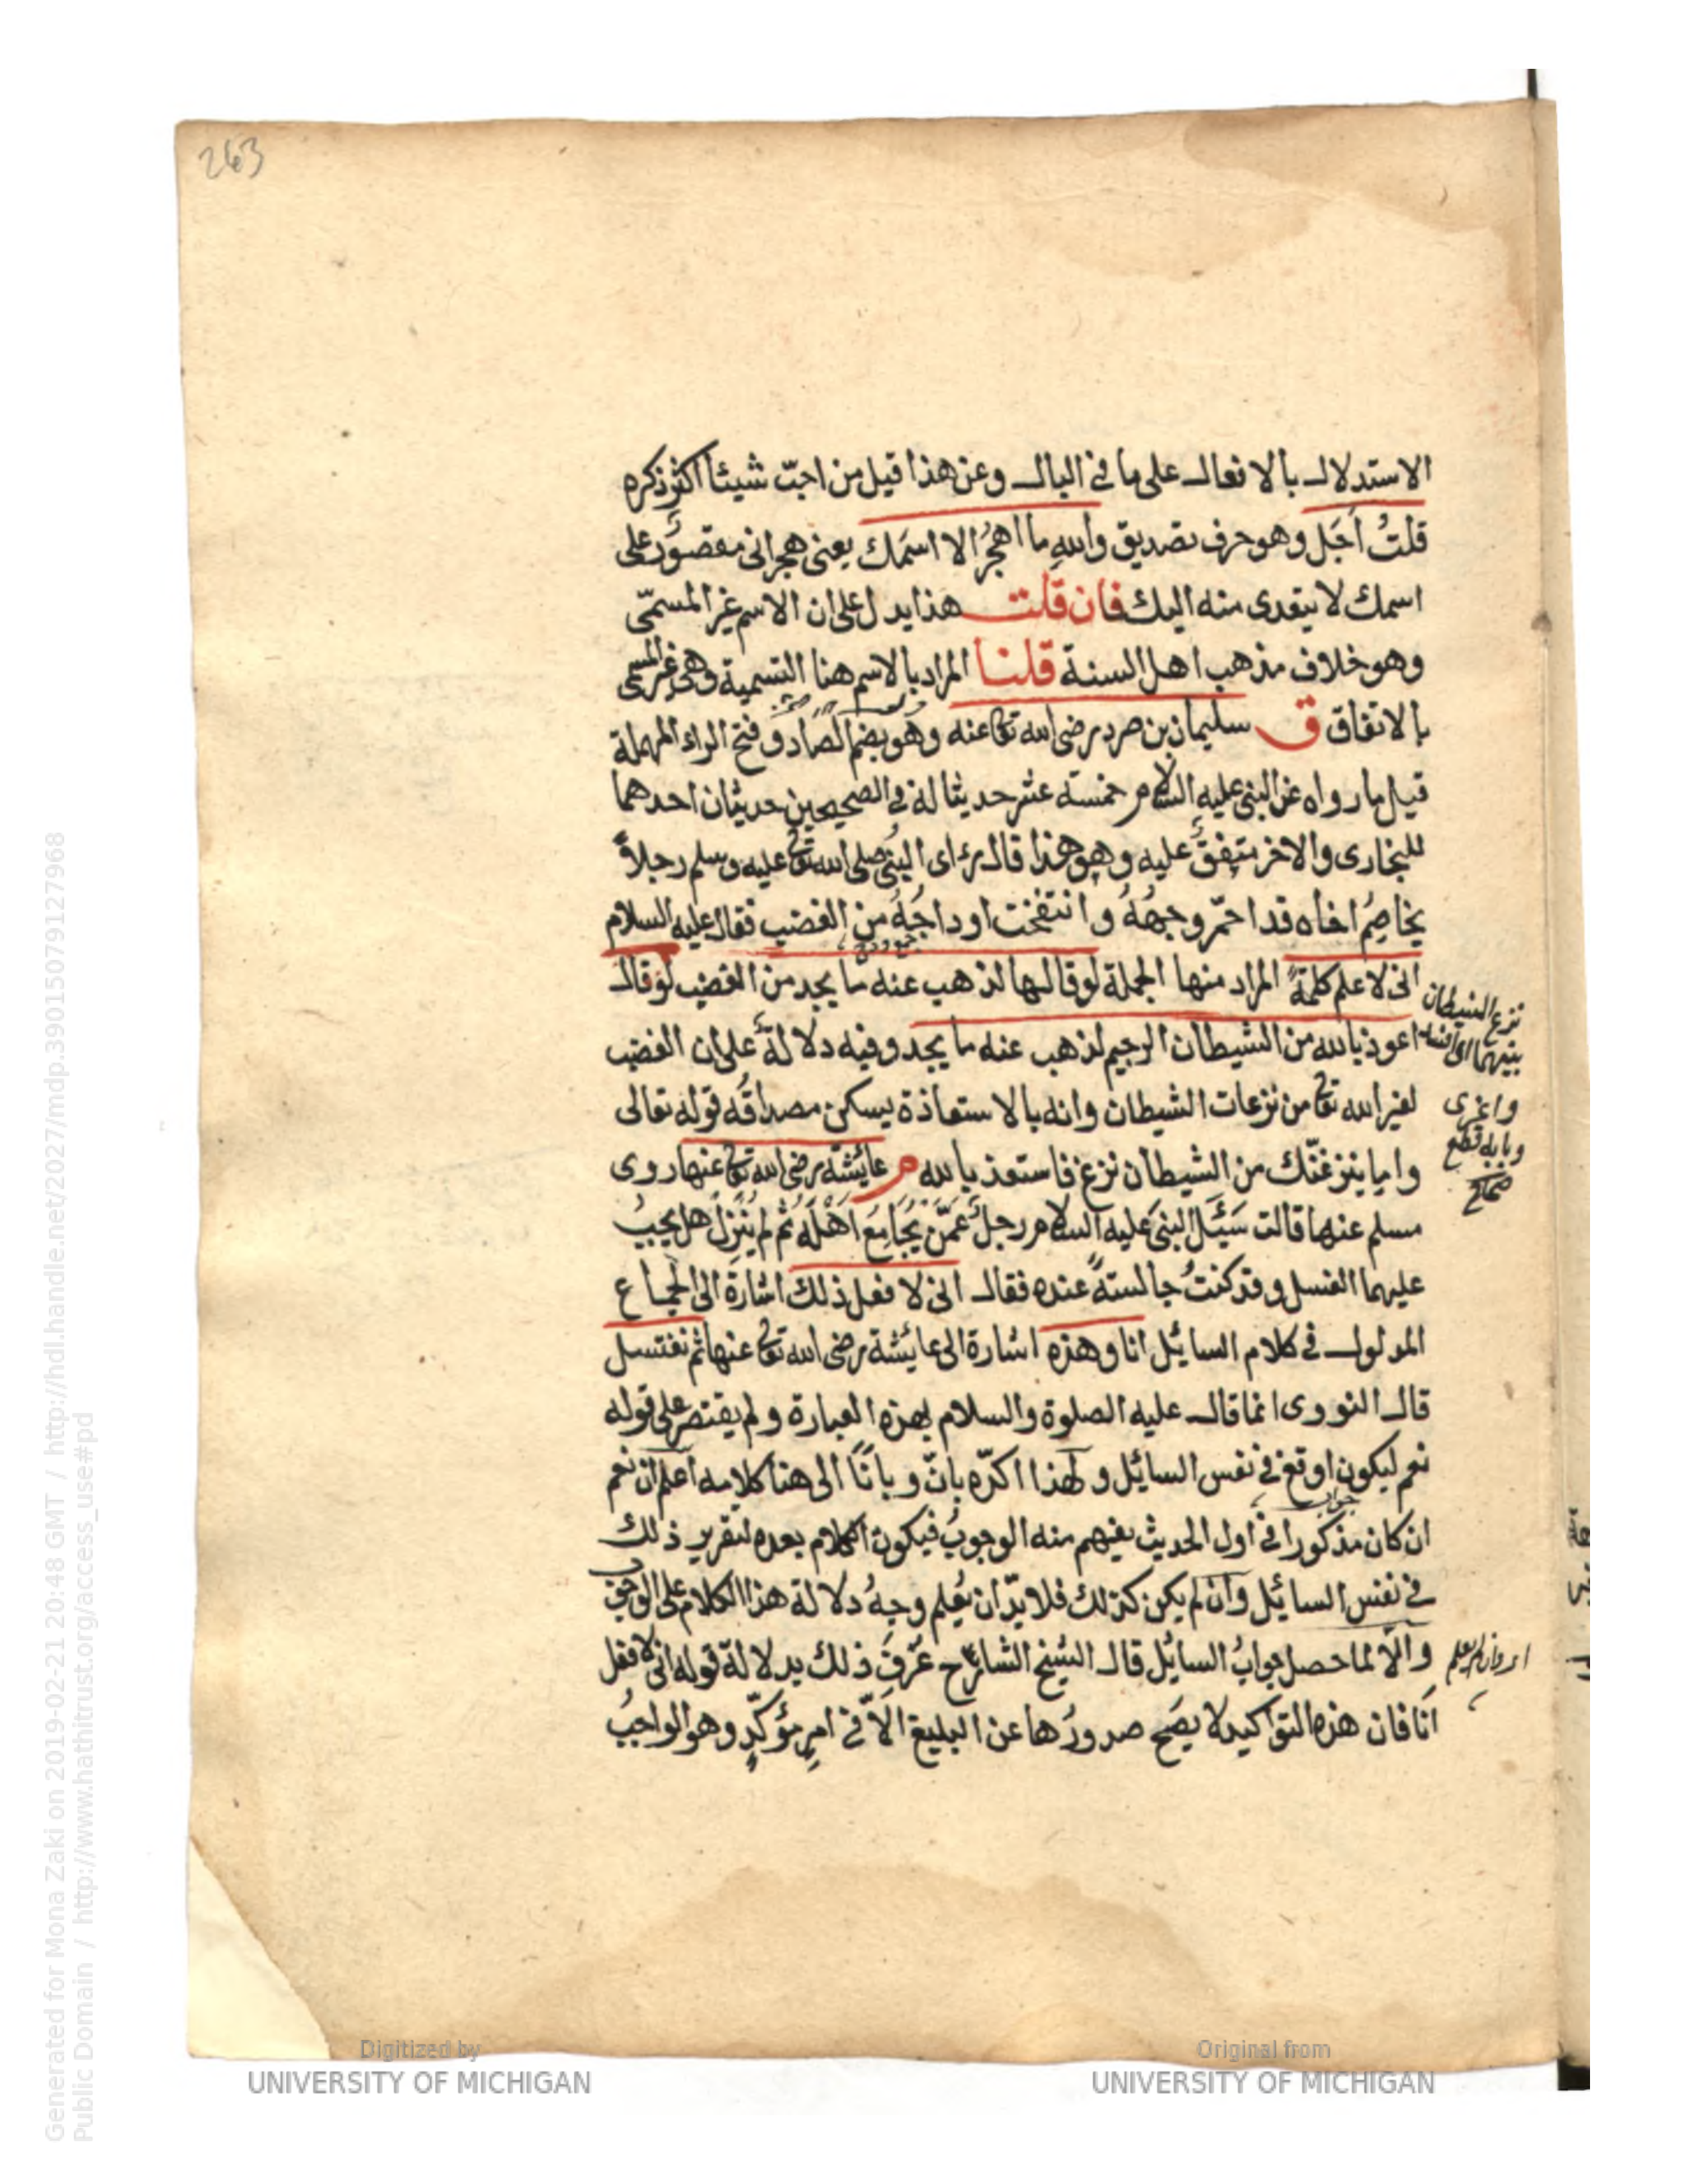 263
الاستدلال بالافعال على ما في البال وعن هذا قيل من احبّ شيئا اكثر ذكره
قلتُ اَجَل وهو حرف تصديق والله ما اهجُرُ الا اسمَك يعنى هجرانى مقصورٌ على
اسمك لا يتعدى منه اليك فان قلت هذا يدل على ان الاسم غير المسمّى
وهو خلاف مذهب اهل السنة قلنا المراد بالاسم هنا التسمية وهى غير المسمى
بالاتفاق ق سليمان بن صرد رضى الله تعا عنه وهو بضم الصاد وفتح الراء المهملة
قيل ما رواه عن النبى عليه السلام خمسة عشر حديثا له في الصحيحين حديثان احدهما
للبخارى والاخر متفقٌ عليه وهو هذا قال رءاى النبى صلى الله تعا عليه وسلم رجلاً
يخاصِمُ اخاه قد احمّر وجهُهُ وانتفخت اوداجُهُ من الغضب فقال عليه السلام
انى لاعلم كلمةً المراد منها الجملة لو قالها لذهب عنه ما يجد من الغضب لو قال
اعوذ بالله من الشيطان الرجيم لذهب عنه ما يجد وفيه دلالةٌ على ان الغضب
لغير الله تعا من نزعات الشيطان وانه بالاستعاذة يسكن مصداقُه قوله تعالى
واما ينزغنّك من الشيطان نزغ فاستعذ بالله م عائشة رضى الله تعا عنها روى
مسلم عنها قالت سَئَل النبىَ عليه السلام رجلٌ عَمّن يُجَامِعُ اَهْلَهُ ثم لم يُنزِلُ هل يجبُ
عليهما الغسل وقد كنتُ جالسةً عنده فقال انى لافعل ذلك اشارة الى الجماع
المدلول في كلام السائل انا وهذه اشارة الى عائشة رضى الله تعا عنها ثم نغتسل
قال النووى انما قال عليه الصلوة والسلام بهذه العبارة ولم يقتصر على قوله
نعم ليكون اوقع في نفس السائل ولهذا اكدّه بانّ وبانَا الى هنا كلامه اعلم ان نعم
ان كان مذكورا في اول الحديث يفهم منه الوجوبُ فيكون الكلام بعده لتقرير ذلك
في نفس السائل وان لم يكن كذلك فلا بدّ ان يُعلم وجهُ دلالة هذا الكلام على الوجوب
والاّ لما حصل جوابُ السائل قال الشيخ الشارح عُرِفَ ذلك بدلالة قوله انى لافعل
اَنا فان هذه التواكيد لا يصَح صدورُها عن البليغ الاّ في امرٍ مؤكّدٍ وهو الواجبُ
نزغ الشيطان
بينهما اى افسد
واغرى
وبابه قطع
صحاح
Generated for Mona Zaki on 2019-02-21 20:48 GMT / http://hdl.handle.net/2027/mdp.39015079127968
Public Domain / http://www.hathitrust.org/access_use#pd
Digitized by
UNIVERSITY OF MICHIGAN
Original from
UNIVERSITY OF MICHIGAN